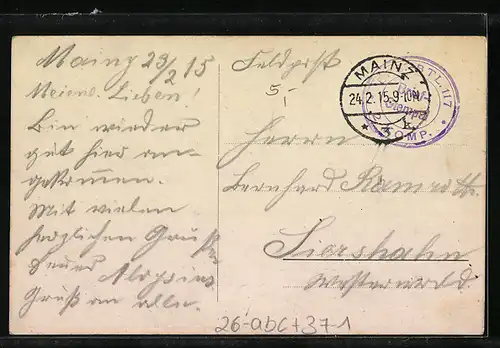 Mainz 23/2 15
Meine Lieben!
Bin wieder
gut hier an-
gekommen.
Mit vielen
herzlichen Grüßen
Euer Aloysius
Gruß an alle.
Feldpost
5,-
MAINZ
24.2.15.9-10N.
* 3 k.
BTL. 117
Brief
Stempel
COMP.
Herrn
Bernhard
Siershahn
Westerwald
26-abc+37-1